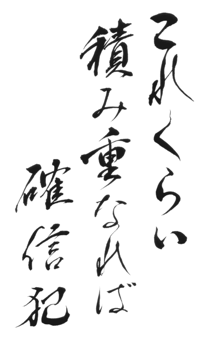 これくらい
積み重なれば
確信犯